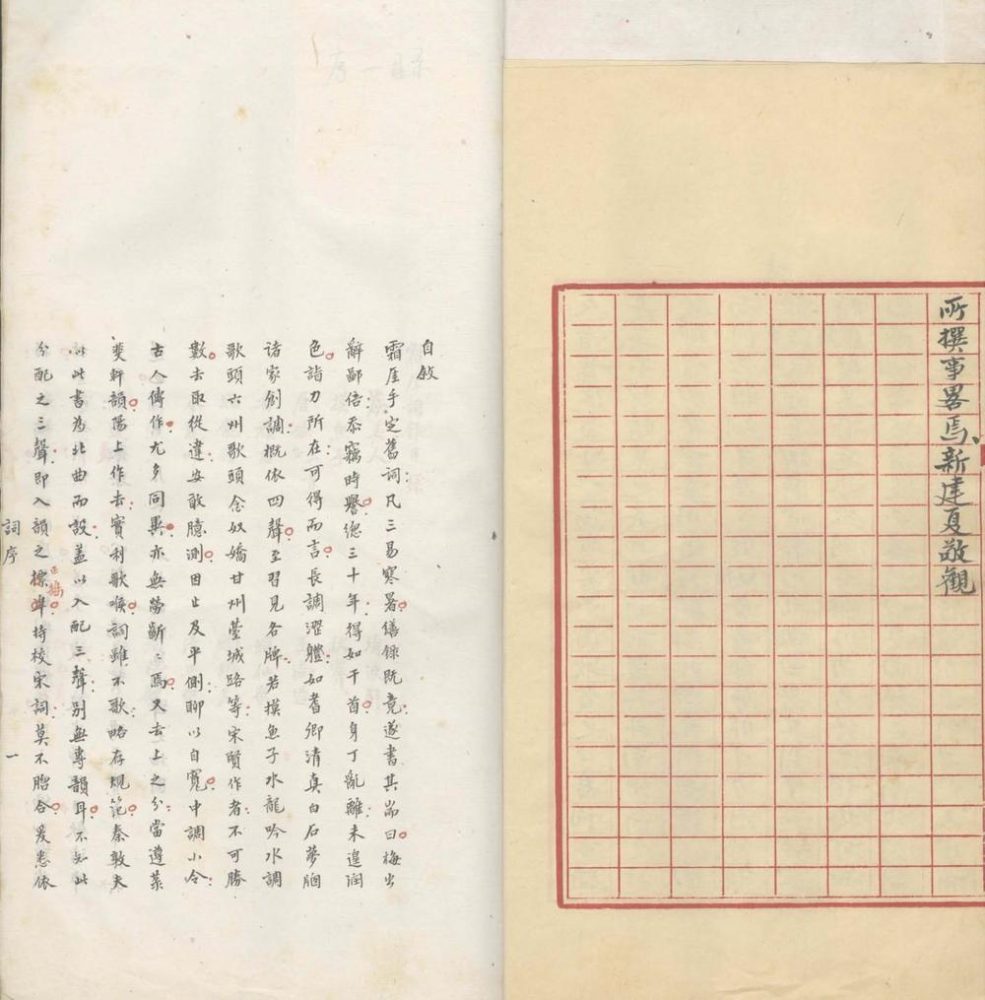 所撰事畧焉新建夏敬觀
自敘
霜厓手定舊詞凡三易寒暑繕錄既竟遂書其耑曰梅出
辭鄙倍忝竊時譽德三十年得如干首身丁亂離未遑潤
色詣力所在可得而言長調澀體如耆卿清真白石夢窗
諸家創調概依四聲至習見各牌若摸魚子水龍吟水調
歌頭六州歌頭念奴嬌甘州臺城路等宋賢作者不可勝
數去取從違安敢臆測因止及平側聊以自寬中調小令
古人傳作尤多同異亦無勞齗〻焉又去上之分當遵菉
斐軒韻陽上作去實利歌喉詞雖不歌略存規範秦敦夫
以此書為北曲而設蓋以入配三聲別無專韻耳不知此
分配之三聲即入韻之標準持校宋詞莫不脗合爰悉依
詞序
一